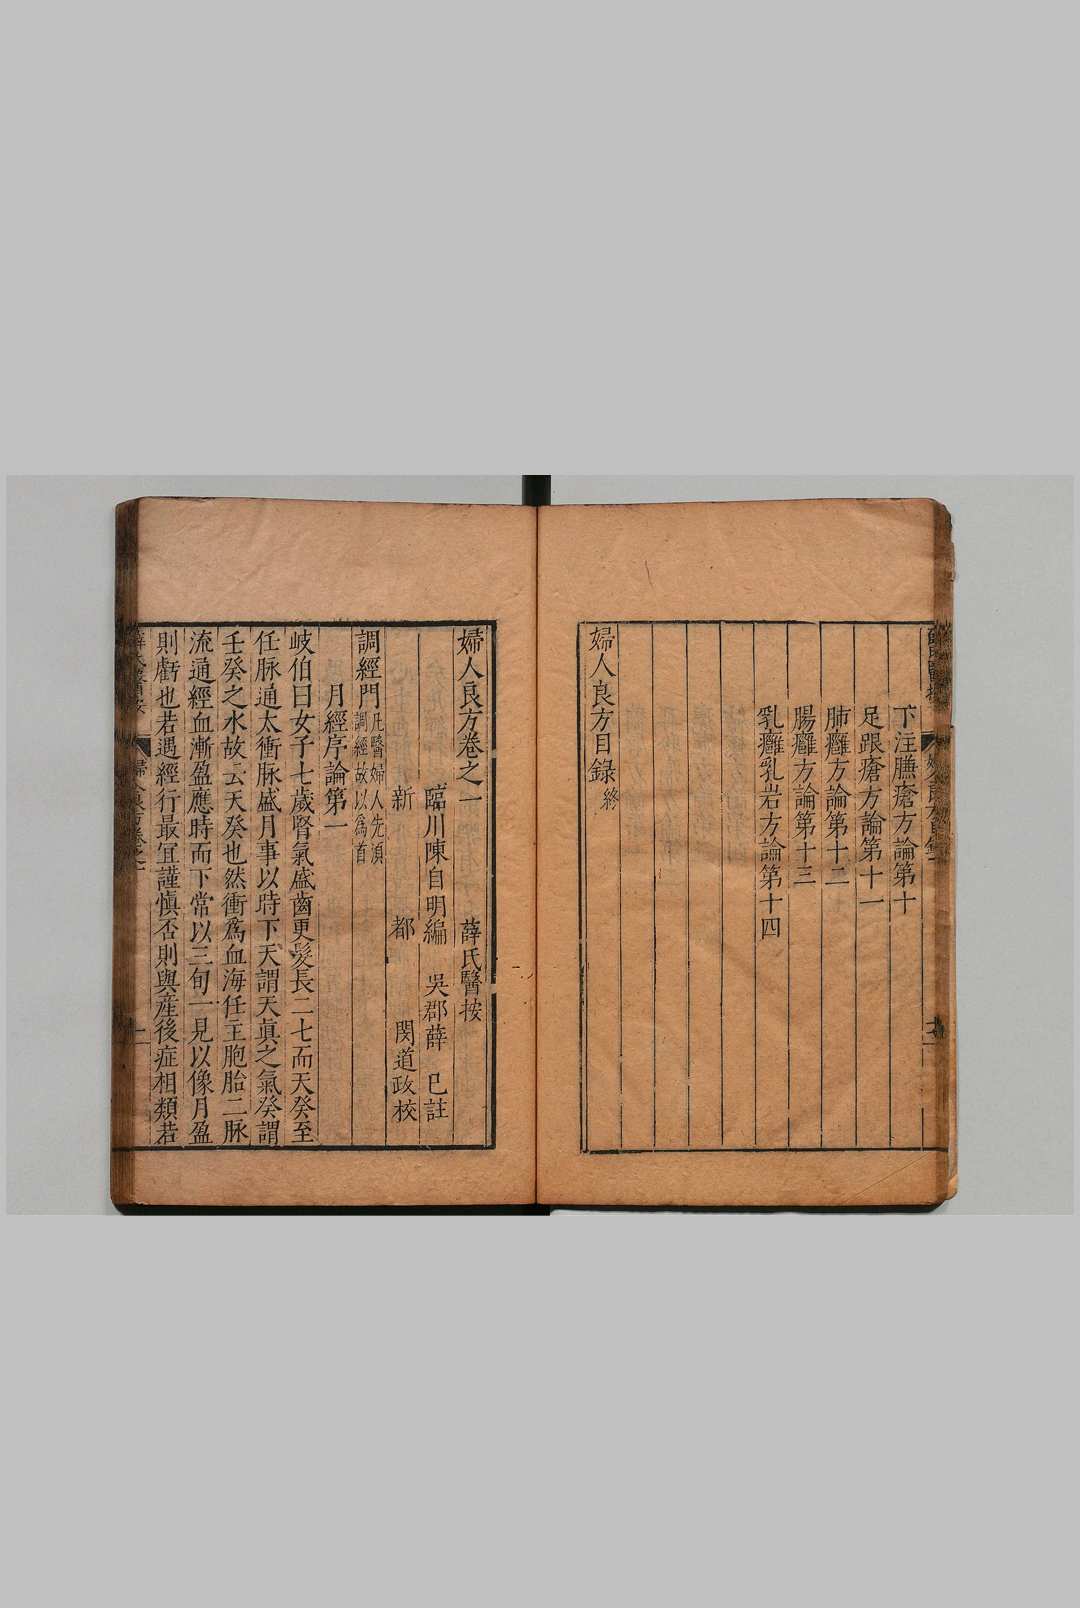 下注臁瘡方論第十
足跟瘡方論第十一
肺癰方論第十二
腸癰方論第十三
乳癰乳岩方論第十四
婦人良方目錄終
婦人良方卷之一 薛氏醫按
臨川陳自明編 吳郡薛 己註
新 都 閔道政校
調經門 凡醫婦人先湏
調經故以爲首
月經序論第一
岐伯曰女子七歲腎氣盛齒更髮長二七而天癸至
任脉通太衝脉盛月事以時下天謂天眞之氣癸謂
壬癸之水故云天癸也然衝爲血海任主胞胎二脉
流通經血漸盈應時而下常以三旬一見以像月盈
則虧也若遇經行最宜謹愼否則與產後症相類若